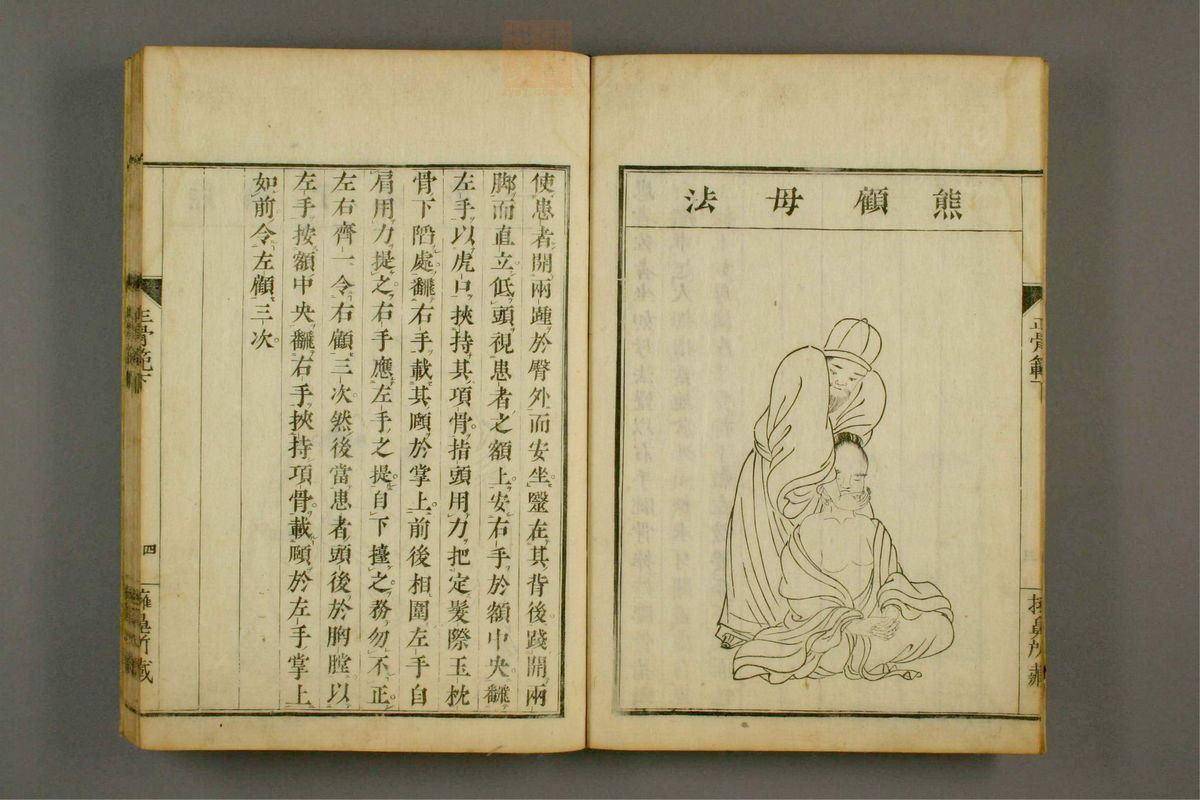 熊顧母法
正骨範下
使患者開兩踵於臀外而安坐。毉在其背後。踐開兩
脚而直立。低頭視患者之額上。安右手於額中央。飜
左手以虎口挾持其項骨。指頭用力把定髮際玉枕
骨下陷處。飜右手載其頤於掌上。前後相圍左手自
肩用力提之。右手應左手之提。自下擡之。務勿不正。
左右齊一令右顧三次。然後當患者頭後於胸膛以
左手按額中央。飜右手挾持項骨。載頤於左手掌上
如前令左顧三次。
正骨範下
四